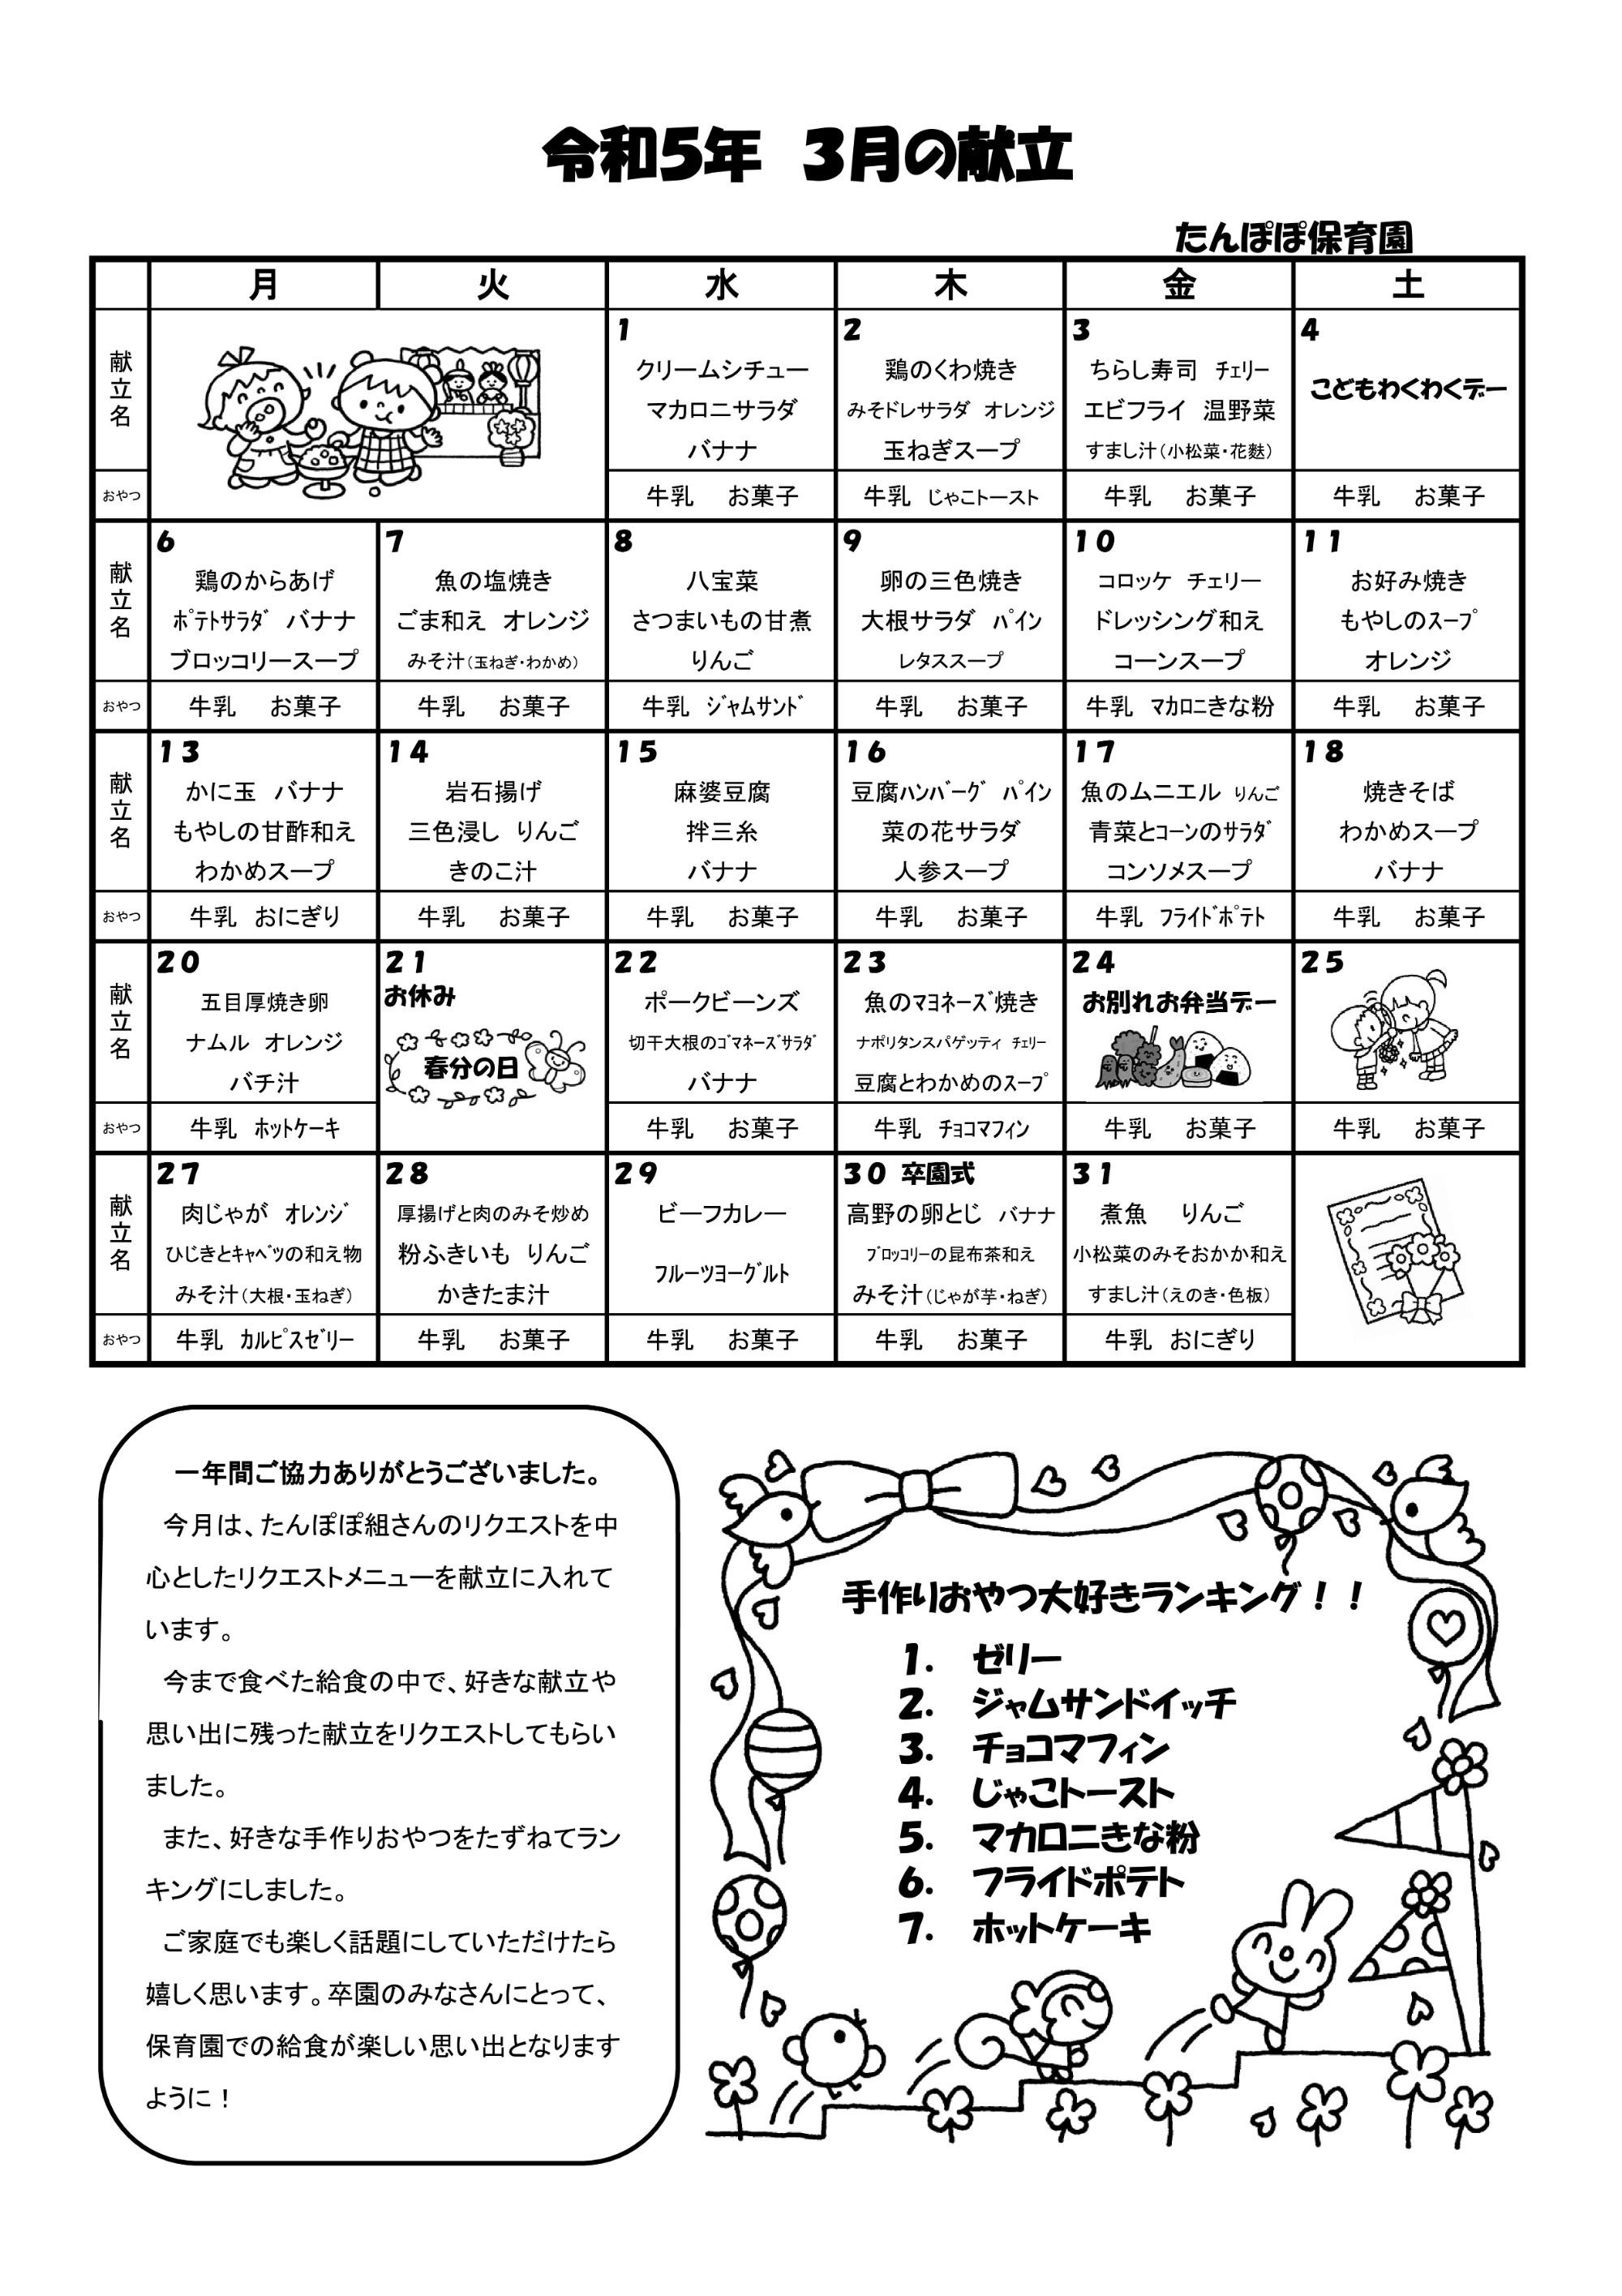 令和5年 3月の献立
たんぽぽ保育園
月 火 水 木 金 土
献立名
1
クリームシチュー
マカロニサラダ
バナナ
2
鶏のくわ焼き
みそドレサラダ オレンジ
玉ねぎスープ
3
ちらし寿司 ﾁｪﾘｰ
エビフライ 温野菜
すまし汁(小松菜・花麩)
4
こどもわくわくデー
おやつ
牛乳 お菓子
牛乳 じゃこトースト
牛乳 お菓子
牛乳 お菓子
献立名
6
鶏のからあげ
ﾎﾟﾃﾄｻﾗﾀﾞ バナナ
ブロッコリースープ
7
魚の塩焼き
ごま和え オレンジ
みそ汁(玉ねぎ・わかめ)
8
八宝菜
さつまいもの甘煮
りんご
9
卵の三色焼き
大根サラダ ﾊﾟｲﾝ
レタススープ
10
コロッケ チェリー
ドレッシング和え
コーンスープ
11
お好み焼き
もやしのｽｰﾌﾟ
オレンジ
おやつ
牛乳 お菓子
牛乳 お菓子
牛乳 ｼﾞｬﾑｻﾝﾄﾞ
牛乳 お菓子
牛乳 ﾏｶﾛﾆきな粉
牛乳 お菓子
献立名
13
かに玉 バナナ
もやしの甘酢和え
わかめスープ
14
岩石揚げ
三色浸し りんご
きのこ汁
15
麻婆豆腐
拌三糸
バナナ
16
豆腐ﾊﾝﾊﾞｰｸﾞ ﾊﾟｲﾝ
菜の花サラダ
人参スープ
17
魚のムニエル りんご
青菜とｺｰﾝのｻﾗﾀﾞ
コンソメスープ
18
焼きそば
わかめスープ
バナナ
おやつ
牛乳 おにぎり
牛乳 お菓子
牛乳 お菓子
牛乳 お菓子
牛乳 ﾌﾗｲﾄﾞﾎﾟﾃﾄ
牛乳 お菓子
献立名
20
五目厚焼き卵
ナムル オレンジ
バチ汁
21
お休み
春分の日
22
ポークビーンズ
切干大根のｺﾞﾏﾈｰｽﾞｻﾗﾀﾞ
バナナ
23
魚のﾏﾖﾈｰｽﾞ焼き
ナポリタンスパゲッティ ﾁｪﾘｰ
豆腐とわかめのｽｰﾌﾟ
24
お別れお弁当デー
25
おやつ
牛乳 ﾎｯﾄｹｰｷ
牛乳 お菓子
牛乳 ﾁｮｺﾏﾌｨﾝ
牛乳 お菓子
牛乳 お菓子
献立名
27
肉じゃが ｵﾚﾝｼﾞ
ひじきとｷｬﾍﾞﾂの和え物
みそ汁(大根・玉ねぎ)
28
厚揚げと肉のみそ炒め
粉ふきいも りんご
かきたま汁
29
ビーフカレー
ﾌﾙｰﾂﾖｰｸﾞﾙﾄ
30 卒園式
高野の卵とじ バナナ
ﾌﾞﾛｯｺﾘｰの昆布茶和え
みそ汁(じゃが芋・ねぎ)
31
煮魚 りんご
小松菜のみそおかか和え
すまし汁(えのき・色板)
おやつ
牛乳 ｶﾙﾋﾟｽｾﾞﾘｰ
牛乳 お菓子
牛乳 お菓子
牛乳 お菓子
牛乳 おにぎり
一年間ご協力ありがとうございました。
今月は、たんぽぽ組さんのリクエストを中
心としたリクエストメニューを献立に入れて
います。
今まで食べた給食の中で、好きな献立や
思い出に残った献立をリクエストしてもらい
ました。
また、好きな手作りおやつをたずねてラン
キングにしました。
ご家庭でも楽しく話題にしていただけたら
嬉しく思います。卒園のみなさんにとって、
保育園での給食が楽しい思い出となります
ように！
手作りおやつ大好きランキング！！
1. ゼリー
2. ジャムサンドイッチ
3. チョコマフィン
4. じゃこトースト
5. マカロニきな粉
6. フライドポテト
7. ホットケーキ